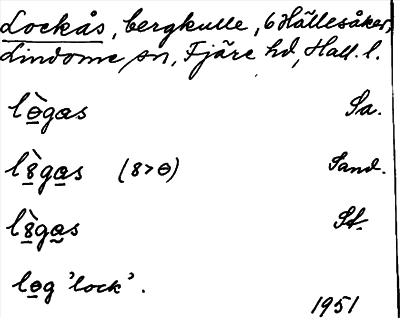 Lockås, bergkulle, 6 Hällesåker,
Lindome sn, Fjäre hd, Hall. l.
lɵ̀gas Sa.
l8̀gas (8>ɵ) Sand.
l8̀gas St.
lɵg 'lock'.
1951